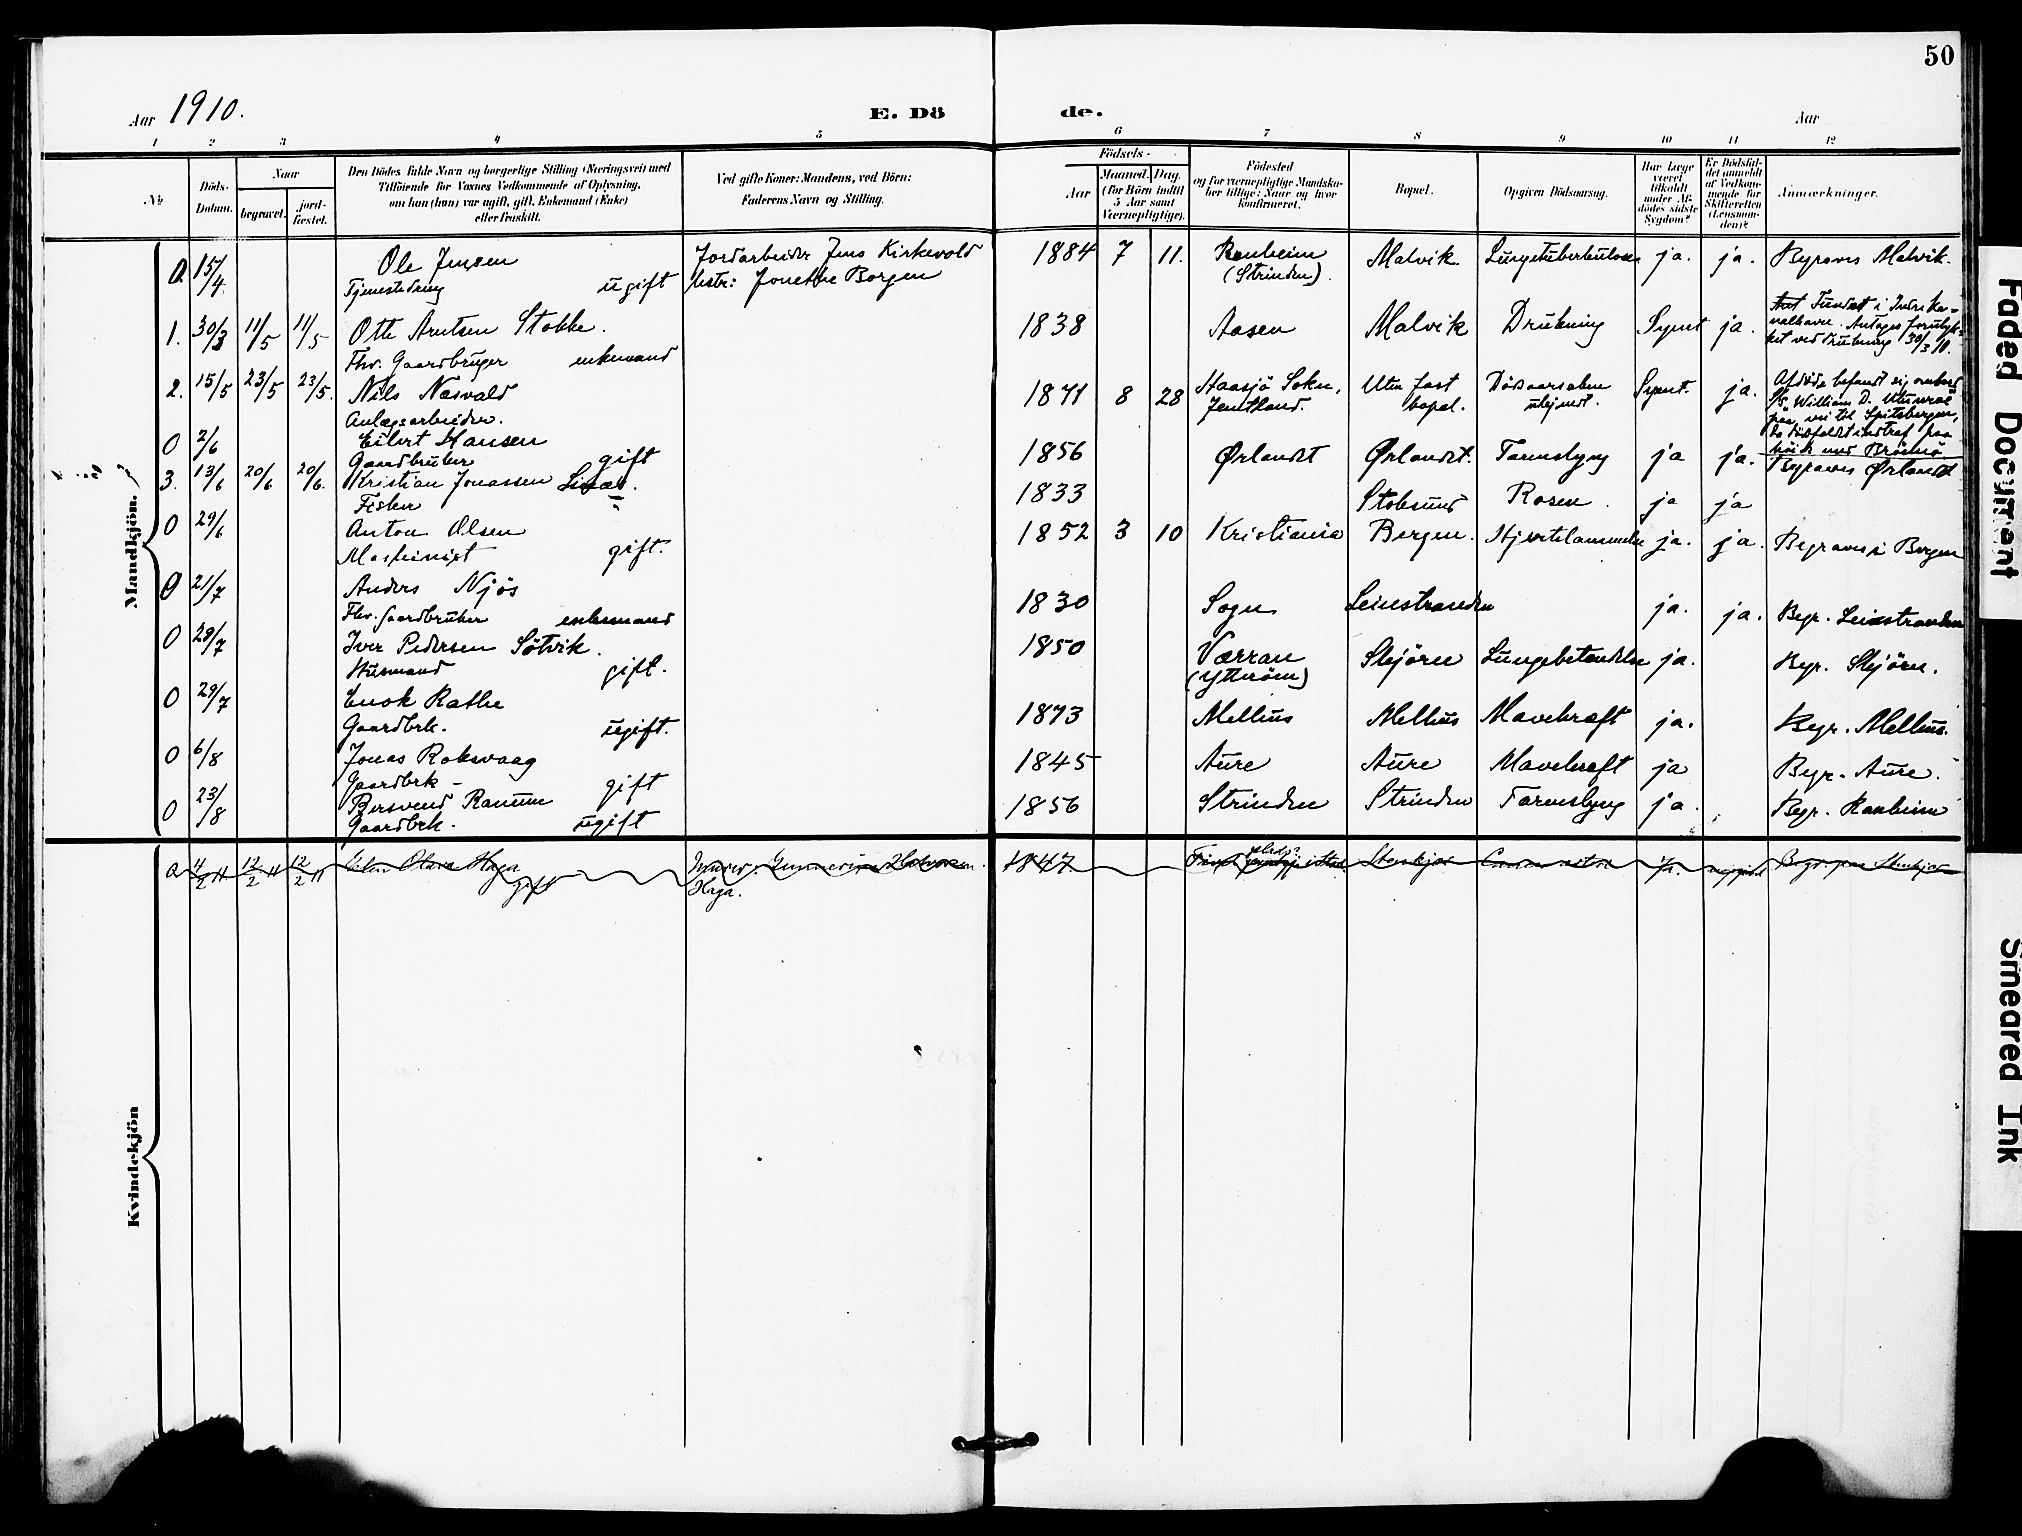 50
Aar 1910.
E. Dö de.
Aar
1 2 3 4 5 6 7 8 9 10 11 12
№
Döds-Datum.
Naar
begravet.
jord-fæstet.
Den Dödes fulde Navn og borgerlige Stilling (Næringsvei) med
Tilföiende for Voxnes Vedkommende af Oplysning,
om han (hun) var ugift, gift, Enkemand (Enke)
eller fraskilt.
Ved gifte Koner: Mandens, ved Börn:
Faderens Navn og Stilling.
Födsels-
Aar
Maaned. Dag.
(for Börn indtil
5 Aar samt
Værnepligtige).
Födested
og for værnepligtige Mandska-
ber tillige: Naar og hvor
konfirmeret.
Bopæl.
Opgiven Dödsaarsag.
Har Læge
været
tilkaldt
under Af-
dödes sidste
Sygdom?
Er Dödsfal-
det anmeldt
af Vedkom-
mende for
Skifteretten
(Lensman-
den)?
Anmærkninger.
Mandkjön.
0 15/4 Ole Jensen Jordarbeider Jens Kirkevold 1884 7 11. Ranheim Malvik Lungetuberkulose ja. ja. Begraves Malvik.
Tjenestedreng ugift Hstr: Jonethe Borgen (Strinden).
1. 30/3 11/5 11/5 Otto Arntsen Stokke. 1838 Aasen Malvik Drukning Synet ja. Fundet i Indre Ka-
nalhavn. Antages forulyk-
ket ved drukning 30/3 10.
Fhv. Gaardbruger enkemand
2. 15/5 23/5 23/5. Nils Næsvald 1871 8 28 Haasjö Sokn, Uten fast Dödsaarsaken Synet. ja. Afdöde befandt sig ombord
Anlægsarbeider. Jemtland. bopæl. ukjendt. S/S. William D. Munroe
paa vei til Spitsbergen,
da dödsfaldet indtraf paa
höide med Brönnö
0 2/6 Eilert Hansen 1856 Ørlandet Ørlandet. Tarmslyng ja ja. Begraves Ørlandet
Gaardbruker gift
3. 13/6 20/6 20/6. Kristian Jonassen 1833 Stoksund Rosen. ja ja
Fisker "
0 29/6 Anton Olsen 1852 3 10 Kristiania Bergen. Hjertelammelse ja. ja. Begraves i Bergen
Maskinist gift.
0 21/7 Anders Njös 1830 Sogn Leinstranden ja. ja. Begr. Leinstranden
Fhv. Gaardbruker enkemand
0 29/7 Iver Pedersen Sötvik. 1850 Værran Skjörn Lungebetændelse ja. Begr. Skjörn.
Husmand gift. (Ytteröen)
0 29/7 Enok Rathe 1873 Melhus Melhus Mavekræft ja. Begr. Melhus.
Gaardbrk. ugift.
0 6/8 Jonas Roksvaag 1845 Aure Aure Mavekræft ja Begr. Aure.
Gaardbrk - gift
0 23/8 Bersvend Ranum 1856 Strinden Strinden Tarmslyng ja. Begr. Ranheim
Gaardbrk. ugift
Kvindekjön
0 4/2 11 12/2 11 12/2 11 Elen Olava Haga 1847 Stenkjær ja. Begr. paa Stenkjær
gift Haga.
Faded Document
Smeared Ink